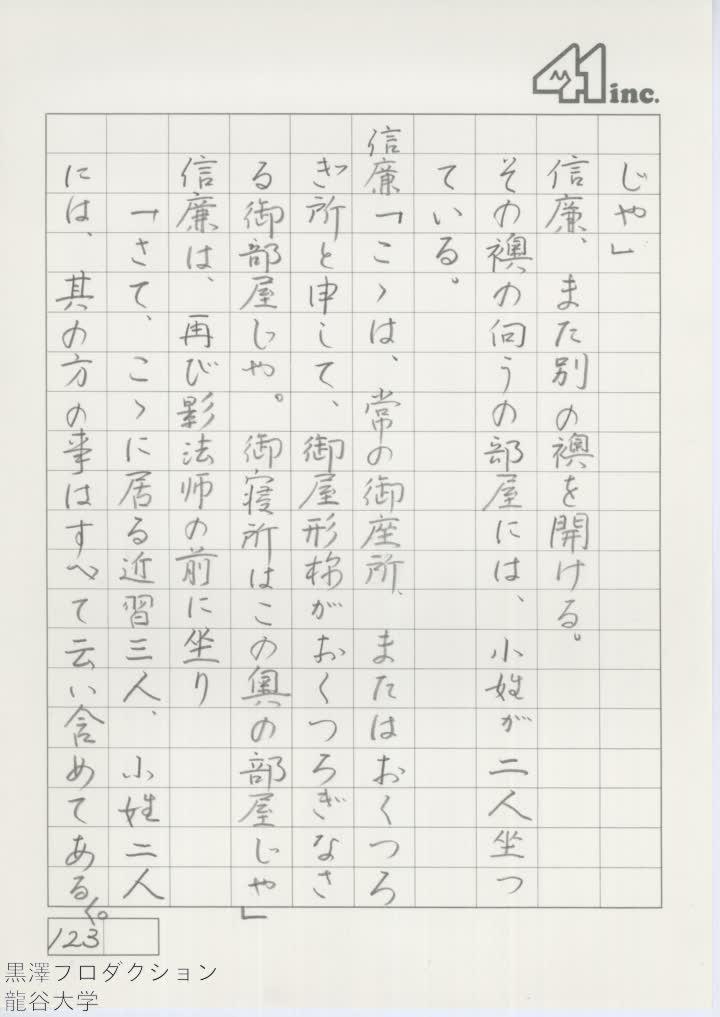 41 inc.
じゃ」
信廉、また別の襖を開ける。
その襖の向うの部屋には、小姓が二人坐つ
ている。
信廉「こゝは、常の御座所、またはおくつろ
ぎ所と申して、御屋形様がおくつろぎなさ
る御部屋じゃ。御寝所はこの奥の部屋じゃ」
信廉は、再び影法師の前に坐り
「さて、こゝに居る近習三人、小姓二人
には、其の方の事はすべて云い含めてある。
123
黒澤プロダクション
龍谷大学